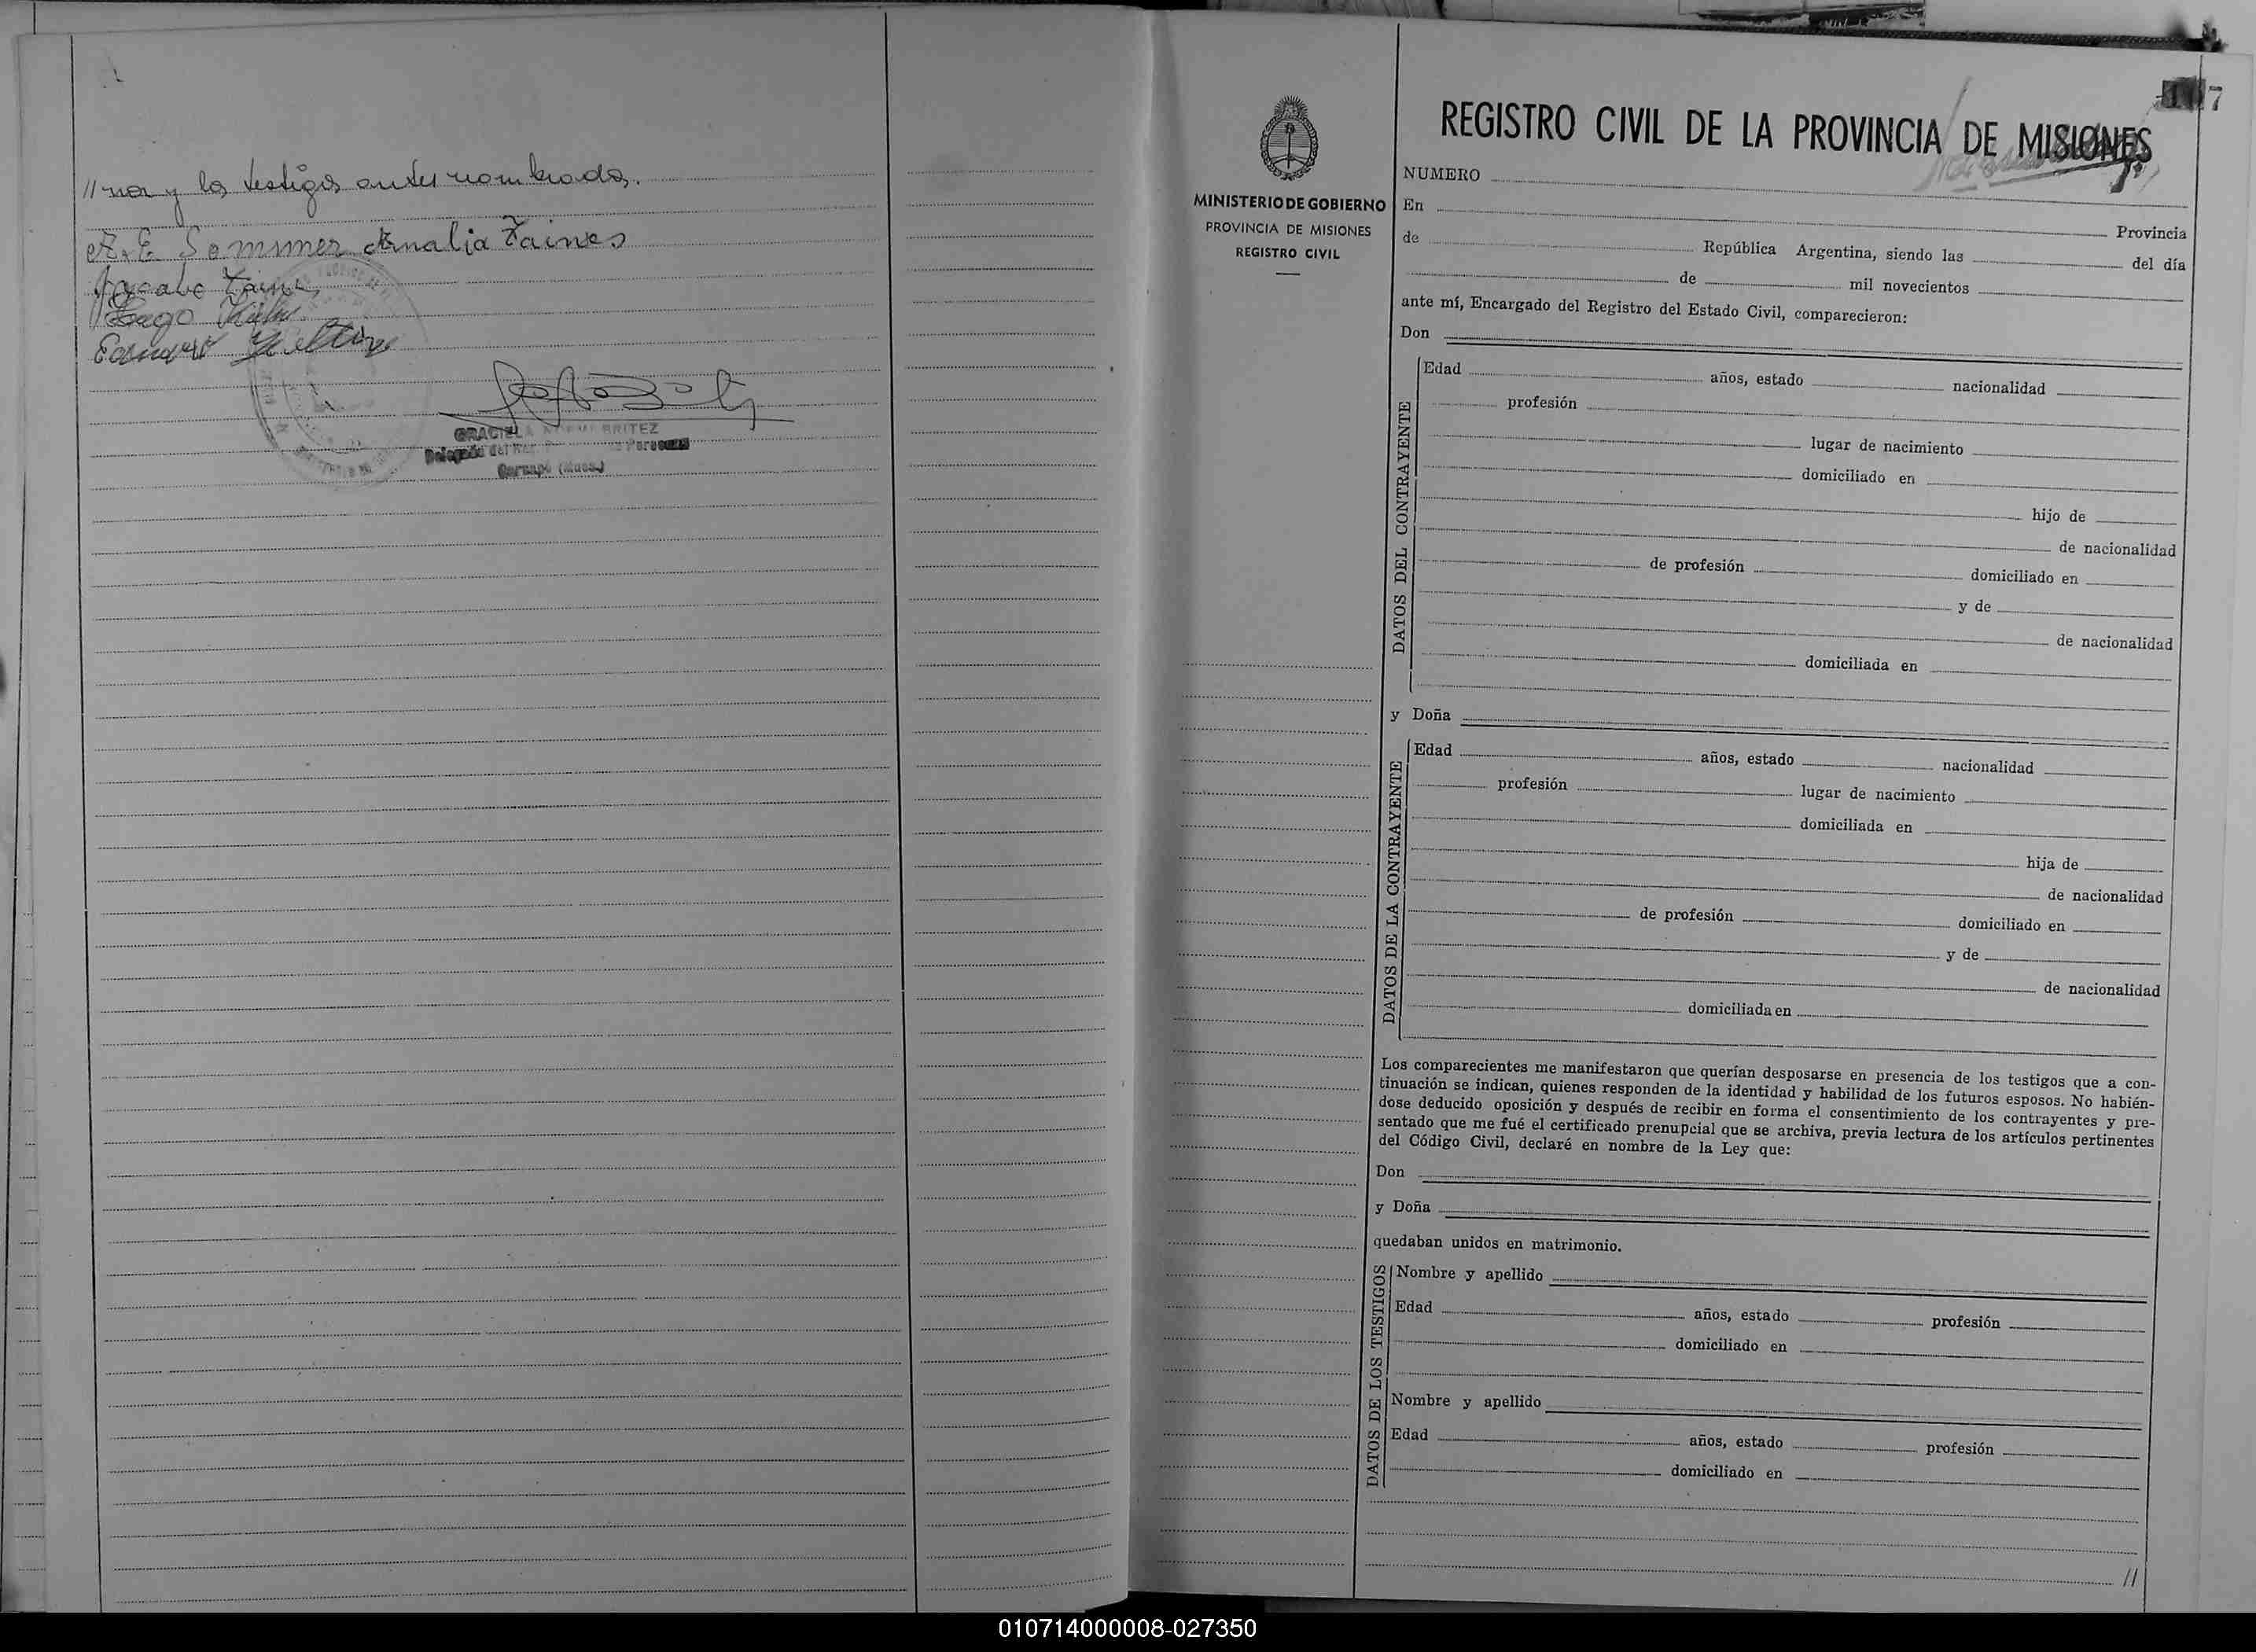 y los testigos antes nombrados.
A. E. Sommer Amalia Zaines
Jacabo
Hugo
GRACIELA BRITEZ
Delegada del
Garuapé (Mnes.)
7
REGISTRO CIVIL DE LA PROVINCIA DE MISIONES
MINISTERIO DE GOBIERNO
PROVINCIA DE MISIONES
REGISTRO CIVIL
NUMERO
En Provincia
de República Argentina, siendo las del día
de mil novecientos
ante mí, Encargado del Registro del Estado Civil, comparecieron:
Don
DATOS DEL CONTRAYENTE
Edad años, estado nacionalidad
profesión
lugar de nacimiento
domiciliado en
hijo de
de nacionalidad
de profesión domiciliado en
y de
de nacionalidad
domiciliada en
y Doña
DATOS DE LA CONTRAYENTE
Edad años, estado nacionalidad
profesión lugar de nacimiento
domiciliada en
hija de
de nacionalidad
de profesión domiciliado en
y de
de nacionalidad
domiciliada en
Los comparecientes me manifestaron que querían desposarse en presencia de los testigos que a con-
tinuación se indican, quienes responden de la identidad y habilidad de los futuros esposos. No habién-
dose deducido oposición y después de recibir en forma el consentimiento de los contrayentes y pre-
sentado que me fué el certificado prenupcial que se archiva, previa lectura de los artículos pertinentes
del Código Civil, declaré en nombre de la Ley que:
Don
y Doña
quedaban unidos en matrimonio.
DATOS DE LOS TESTIGOS
Nombre y apellido
Edad años, estado profesión
domiciliado en
Nombre y apellido
Edad años, estado profesión
domiciliado en
//
010714000008-027350